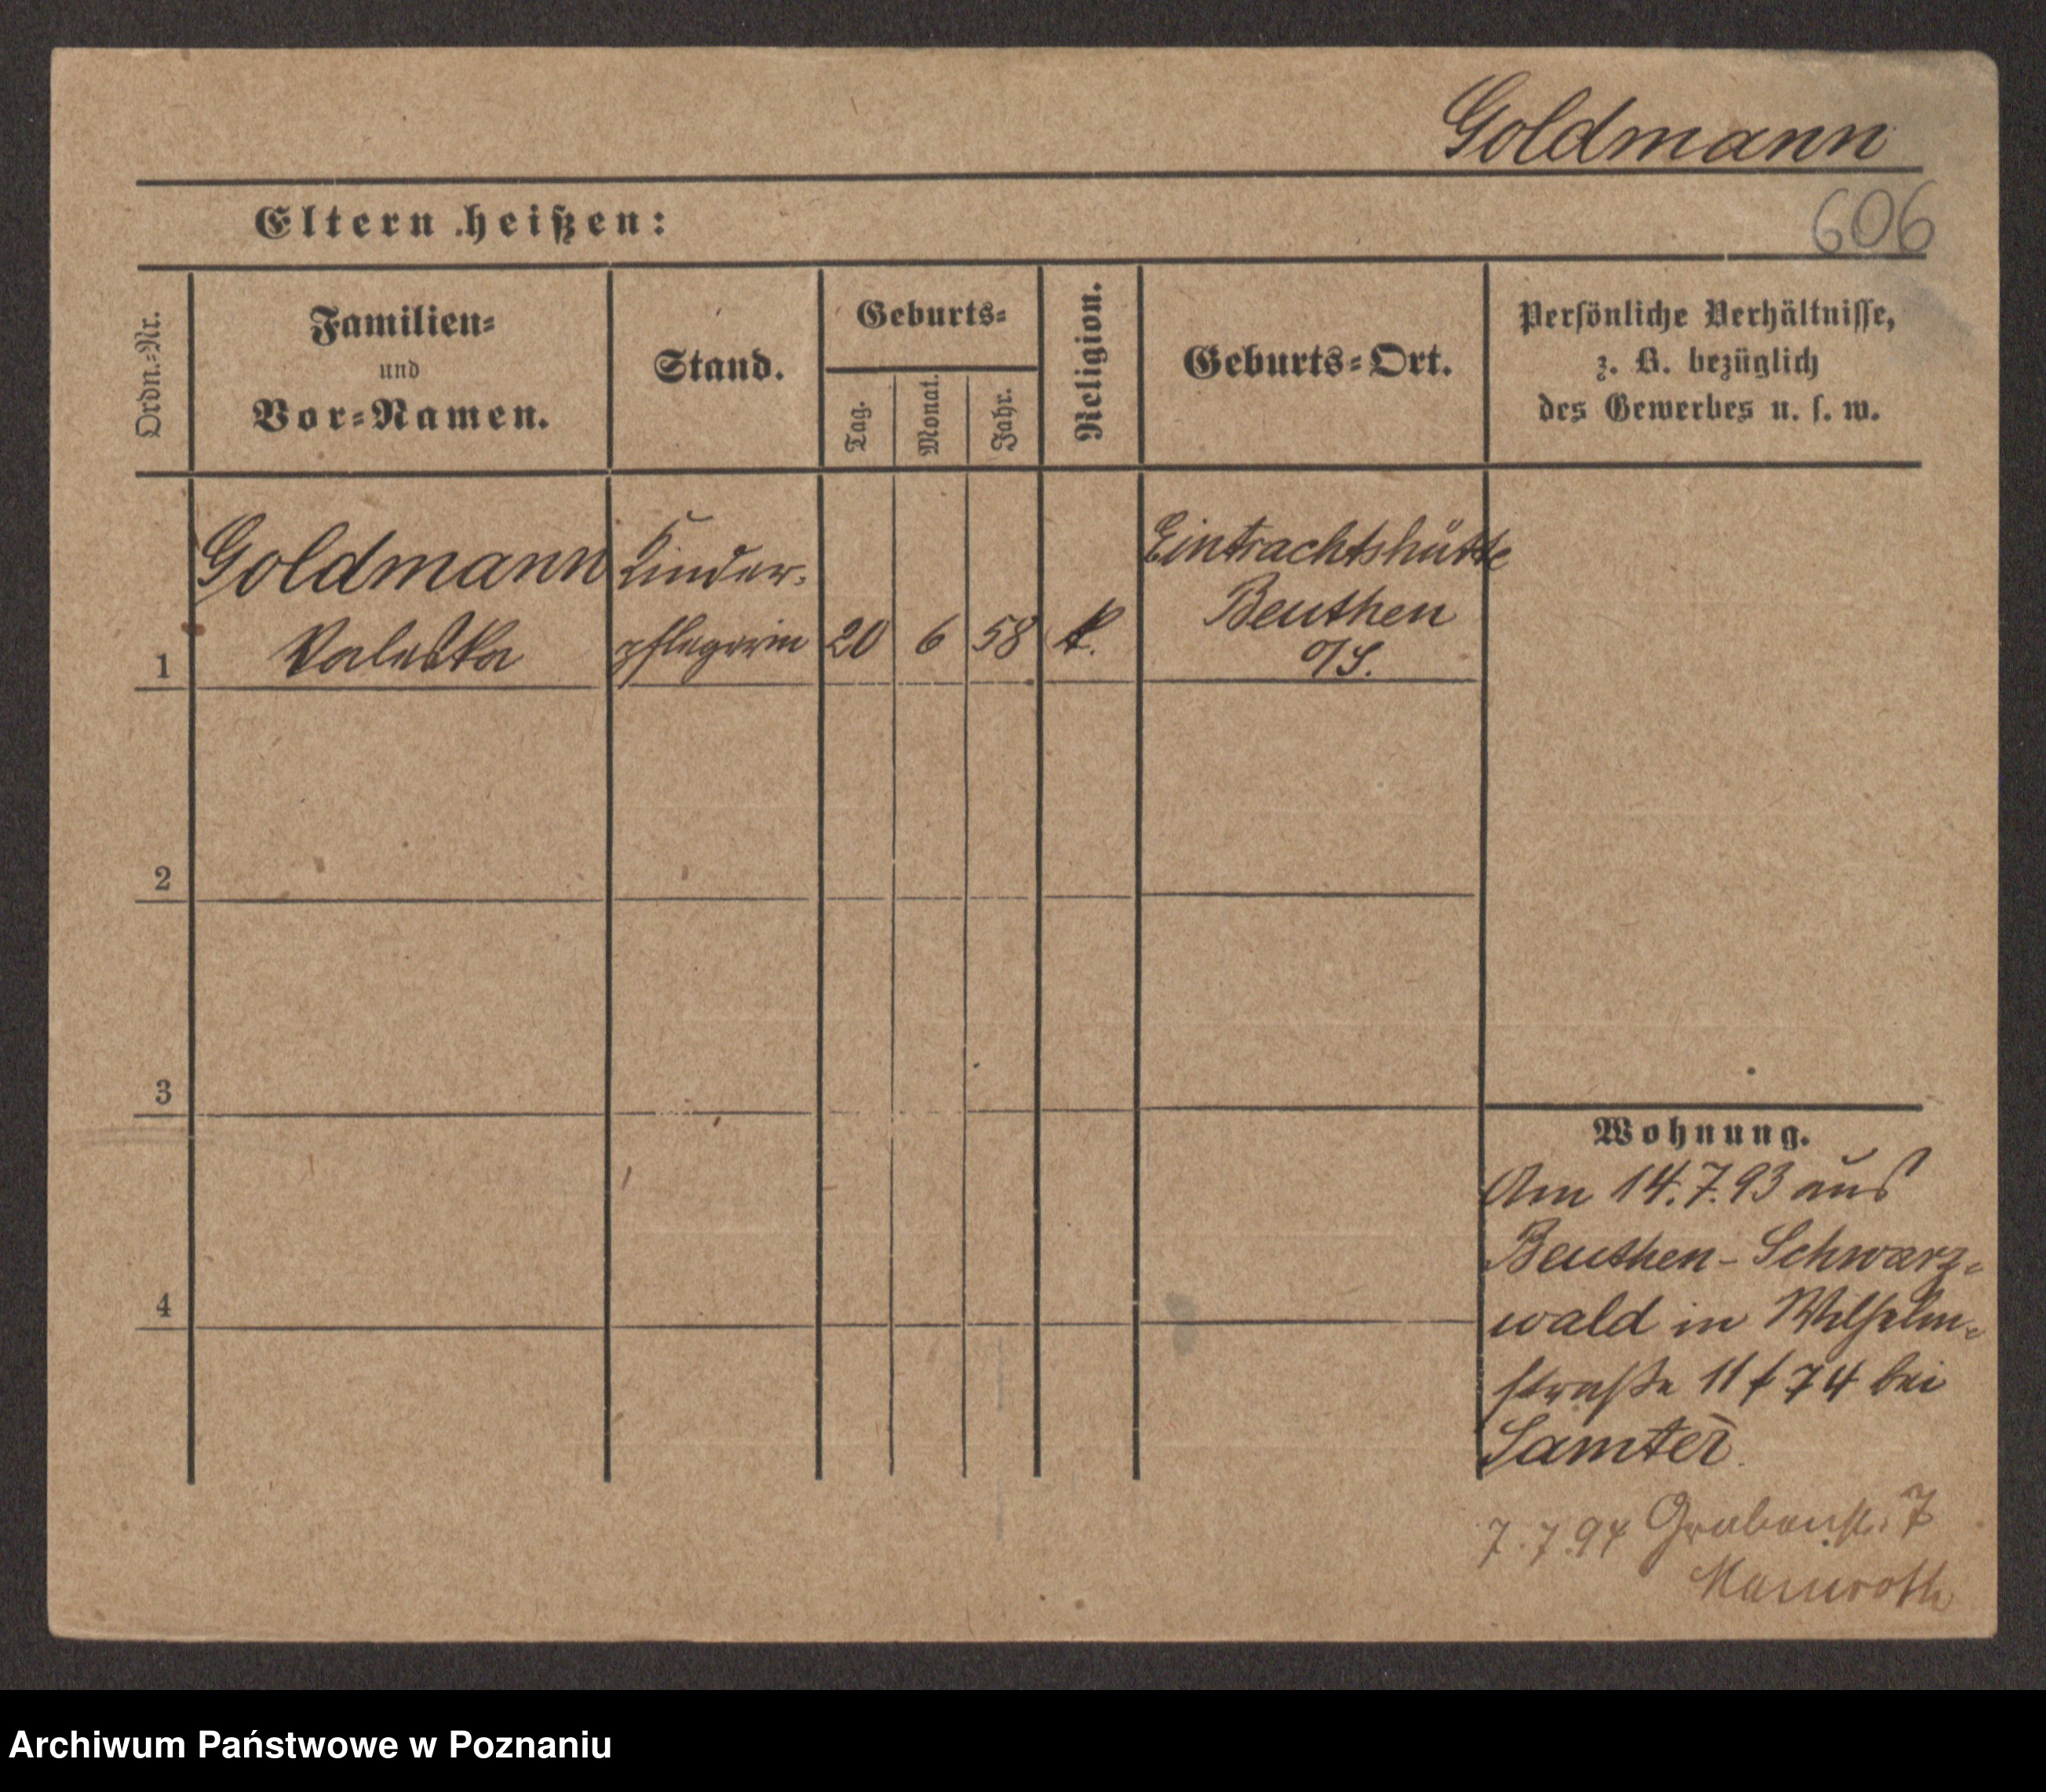 Goldmann
606
Eltern heißen:
Ordn.-Nr.
Familien-
und
Vor-Namen.
Stand.
Geburts-
Tag.
Monat.
Jahr.
Religion.
Geburts-Ort.
Persönliche Verhältnisse,
z. B. bezüglich
des Gewerbes u. s. w.
1
Goldmann
Valeska
Kinder-
pflegerin
20
6
58
k.
Eintrachtshütte
Beuthen
O/S.
2
3
4
Wohnung.
Am 14.7.93 aus
Beuthen-Schwarz-
wald in Wilhelm-
straße 11 / 74 bei
Samter.
7.7.94 Grabenst. 7
Mamroth
Archiwum Państwowe w Poznaniu